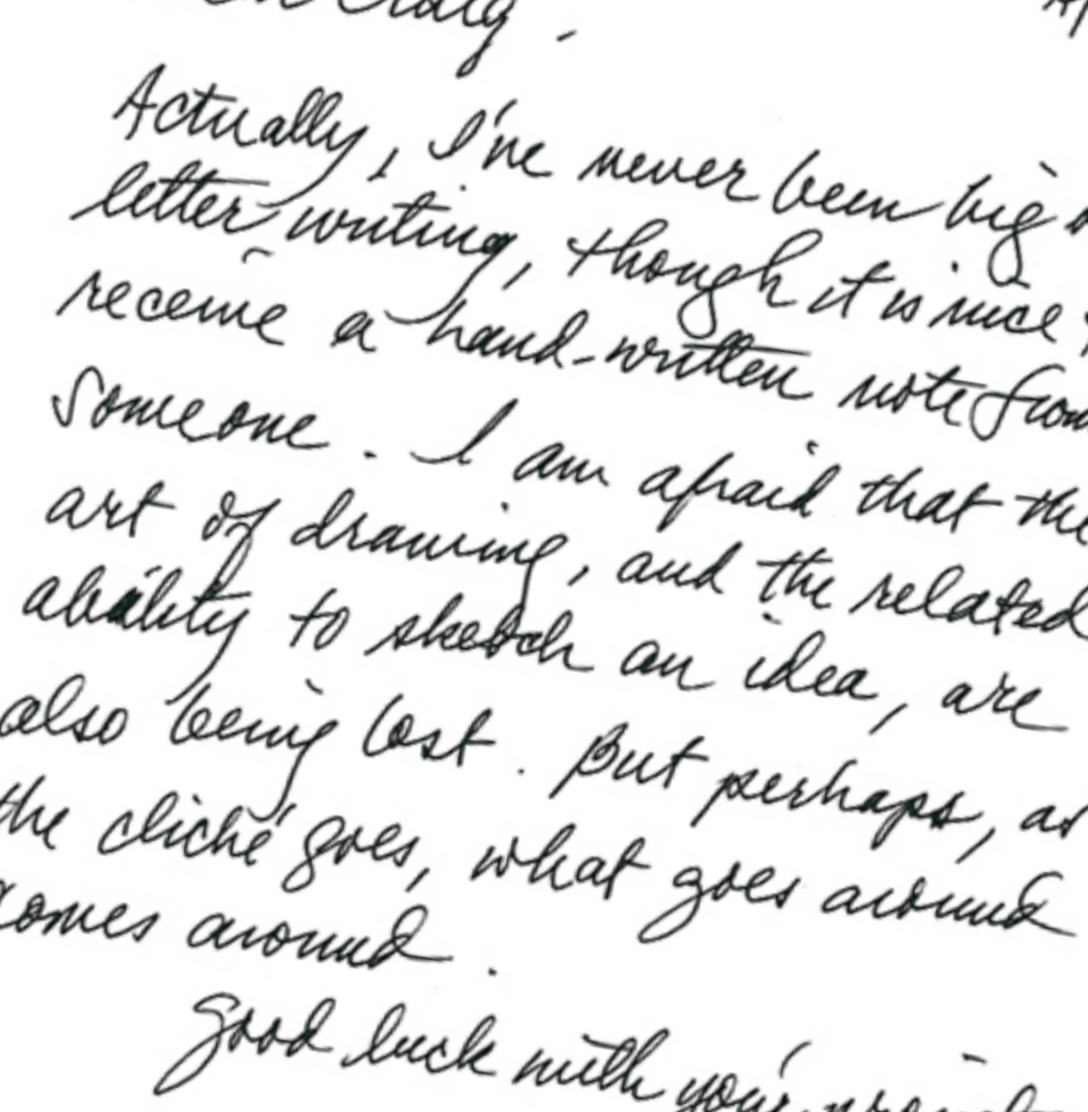 Craig.
Actually, I've never been big
letter writing, though it is nice
receive a hand-written note from
someone. I am afraid that the
art of drawing, and the related
ability to sketch an idea, are
also being lost. But perhaps, as
the cliché goes, what goes around
comes around.
Good luck with your